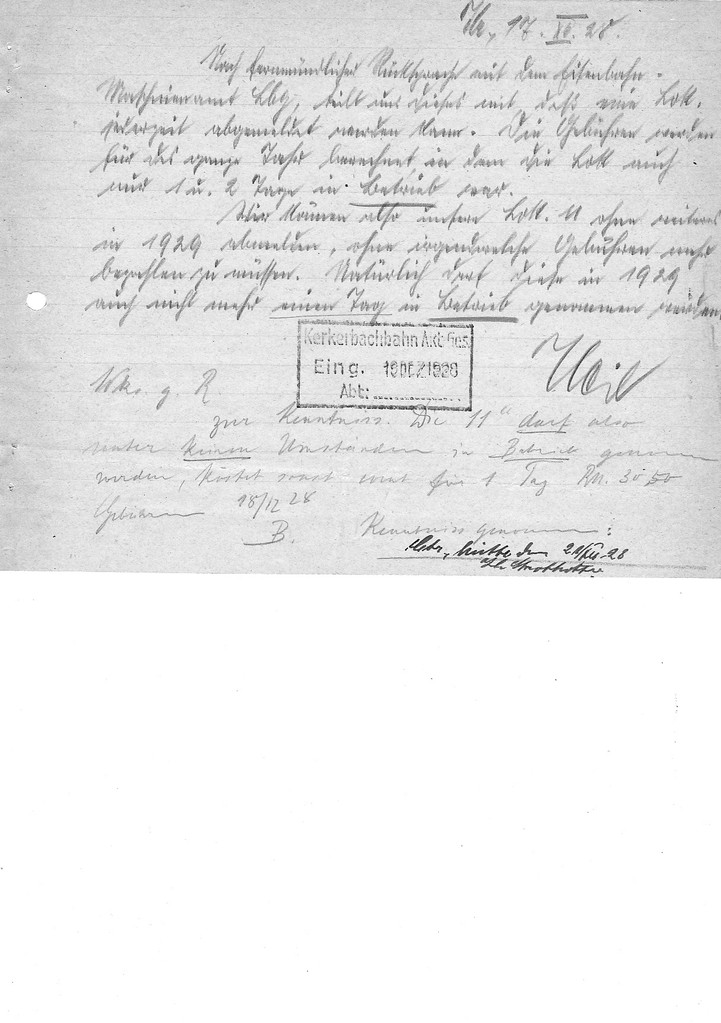 17. XII. 28.
Nach fernmündlicher Rücksprache mit dem Eisenbahn-
Maschinenamt Lbg, teilt uns dieses mit, daß eine Lok.
jederzeit abgemeldet werden kann. Die Gebühren werden
für das ganze Jahr berechnet in dem die Lok auch
nur 1 u. 2 Tage in Betrieb war.
Wir können also unsere Lok. 11 ohne weiteres
in 1929 abmelden, ohne irgendwelche Gebühren mehr
bezahlen zu müssen. Natürlich darf diese in 1929
auch nicht mehr einen Tag in Betrieb genommen werden.
Kerkerbachbahn Akt.Ges.
Eing. 19 DEZ 1928
Abt:
g. R
zur Kenntniss. Die 11 darf also
unter keinen Umständen in Betrieb genommen
werden, kostet sonst für 1 Tag Rm. 30
18/12 28
B.
Kenntniss genommen:
den 21/XII. 28